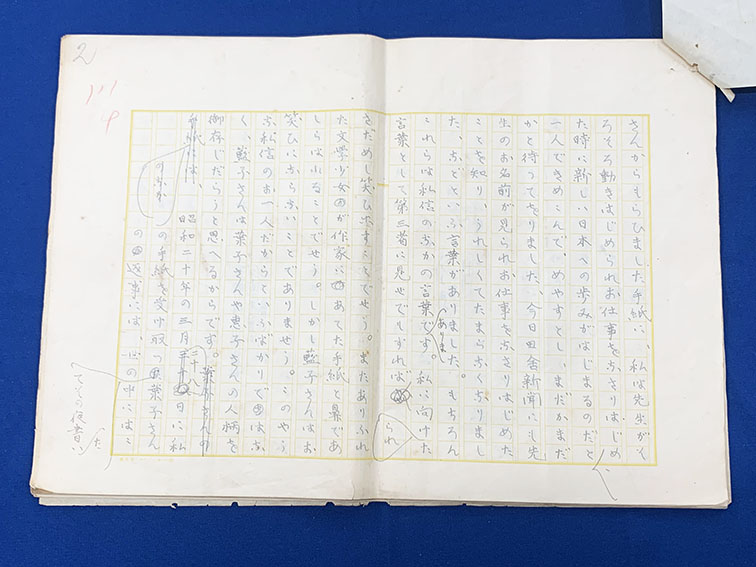 さんからもらひました手紙に、私は先生がそ
ろそろ動きはじめられお仕事をなさりはじめ
た時に新しい日本への歩みがはじまるのだと
一人できめこんで、めやすとし、まだかまだ
かと待つてをりました、今日田舎新聞にも先
生のお名前が見られお仕事をなさりはじめた
ことを知り、うれしくてたまらなくなりまし
た、などといふ言葉がありました。もちろん
これらは私信のなかの言葉です。私に向けた
ありま
言葉として第三者に見せでもすれば
られ
きだめし笑ひ出すことでせう。またありふれ
た文学少女が作家にあてた手紙と果であ
しらはれることでせう。しかし藍子さんはお
笑ひにならないことでありませう。このやう
な私信のお一人だからといふばかりではな
く、藍子さんは葉子さんや恵子さんの人柄を
御存じだらうと思へるからです。葉子さんの
手紙には、昭和二十年の三月三十八日に私
の手紙を受け取つ葉子さん
の返事には、世の中にはこ
てその後書い
た
2